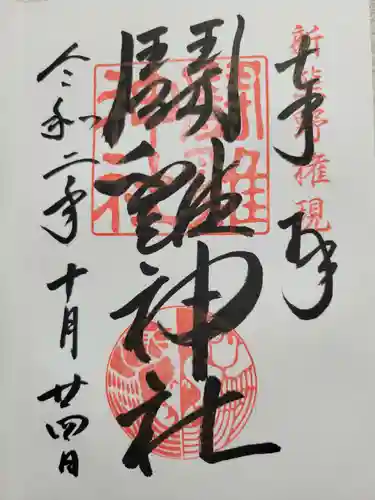 新熊野権現
奉拝
闘雞神社
令和二年十月廿四日
闘雞神社